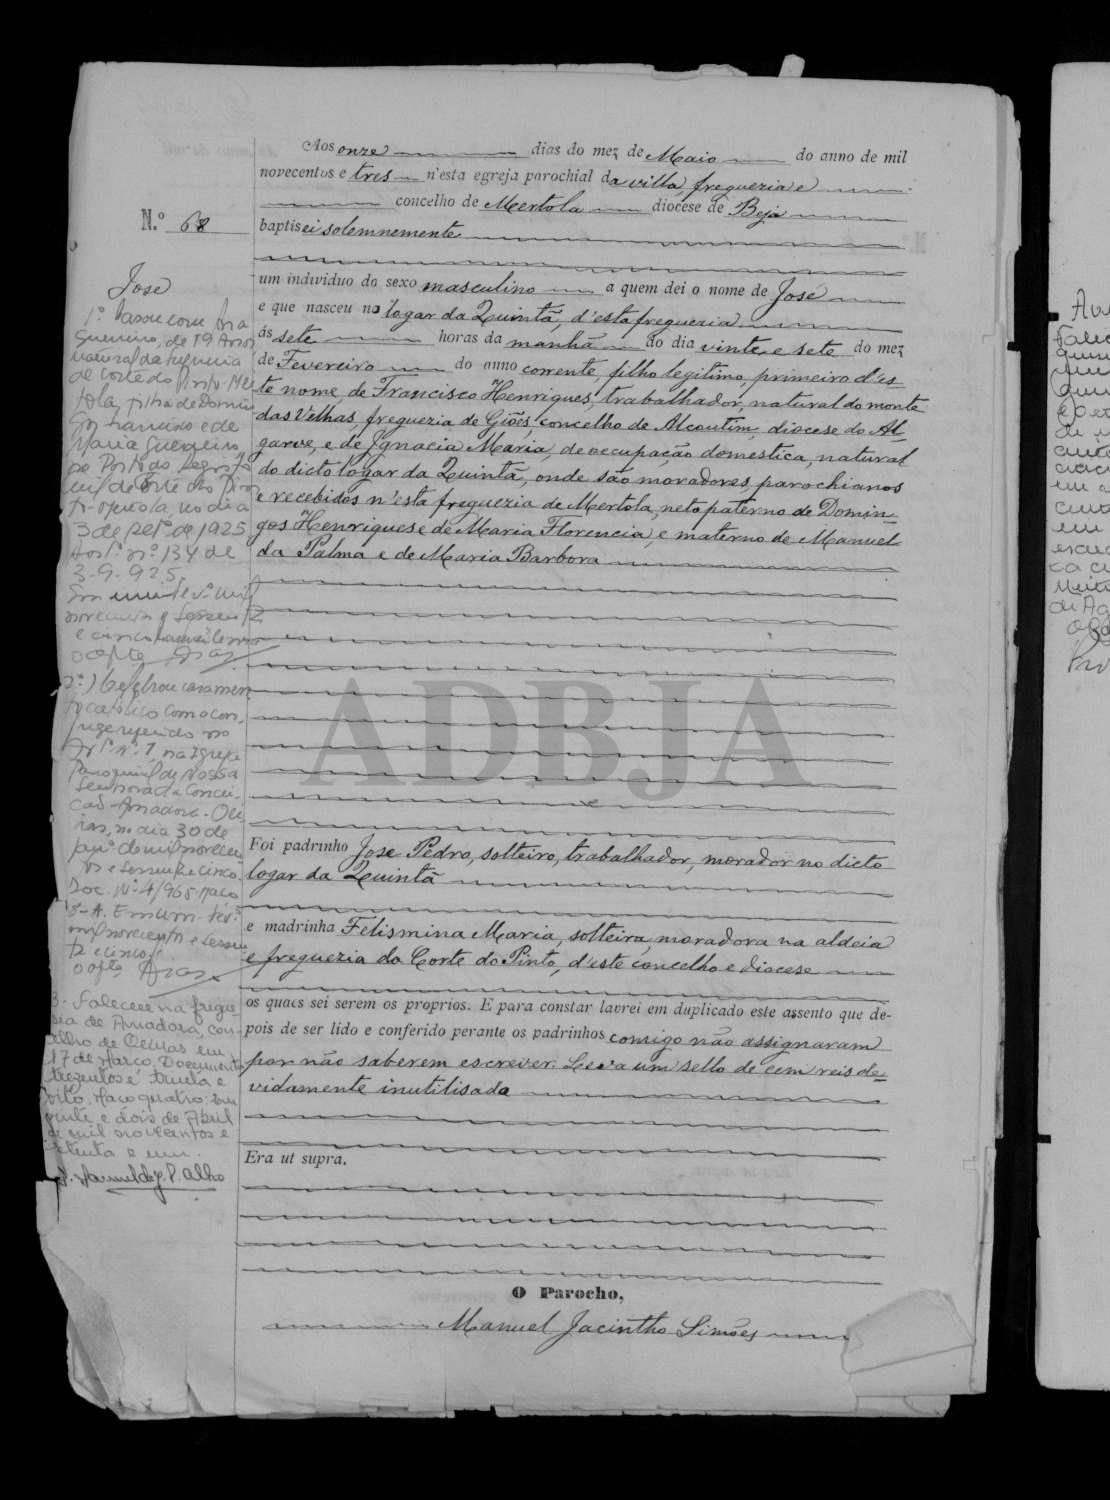 Aos onze dias do mez de Maio do anno de mil
novecentos e tres n'esta egreja parochial da villa, freguezia e
concelho de Mertola diocese de Beja
baptisei solemnemente
N.º 68
José
um individuo do sexo masculino a quem dei o nome de José
e que nasceu no logar da Quintã, d'esta freguezia
ás sete horas da manhã do dia vinte e sete do mez
de Fevereiro do anno corrente, filho legitimo, primeiro d'es-
te nome, de Francisco Henriques, trabalhador, natural do monte
das Velhas, freguezia de Giões, concelho de Alcoutim, diocese do Al-
garve, e de Ignacia Maria, de occupação domestica, natural
do dicto logar da Quintã, onde são moradores, parochianos
e recebidos n'esta freguezia de Mertola, neto paterno de Domin-
gos Henriques e de Maria Florencia, e materno de Manuel
da Palma e de Maria Barbora
Foi padrinho José Pedro, solteiro, trabalhador, morador no dicto
logar da Quintã
e madrinha Felismina Maria, solteira, moradora na aldeia
e freguezia da Corte do Pinto, d'este concelho e diocese
os quaes sei serem os proprios. E para constar lavrei em duplicado este assento que de-
pois de ser lido e conferido perante os padrinhos comigo não assignaram
por não saberem escrever. Leva um sello de cem reis de-
vidamente inutilisado
Era ut supra.
O Parocho,
Manuel Jacintho Simões
1.º Casou com
Guerreiro, de 19 anos
natural da freguesia
de Corte do Pinto, Mer
tola, filha de Domin
gos e de
Maria Guerreiro,
no Posto do Registo
Civil de Corte do Pinto
Mertola, no dia
3 de Set.º de 1925
n.º 134 de
3-9-925.
Em um de Fev.º mil
novecentos e sessenta
e cinco
2.º) Celebrou casamen
to católico com o con-
juge referido no
n.º 1, na Igreja
Paroquial de Nossa
Senhora da Concei-
ção - Amadora - Oei-
ras, no dia 30 de
Jan.º de mil novecen
tos e sessenta e cinco.
Doc. N.º 4/965 maço
3-A. Em um Fev.º
mil novecentos e sessen
ta e cinco.
3- Faleceu na fregue-
sia de Amadora, con-
celho de Oeiras em
17 de Março. Documento
trezentos e trinta e
oito, Maço quatro. Em
vinte e dois de Abril
de mil novecentos e
setenta e um.
ADBJA